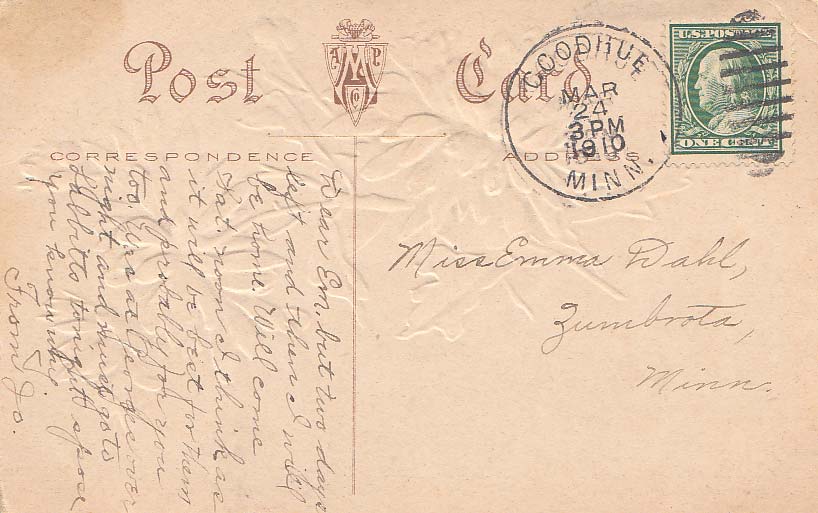 Post Card
A M P Co
CORRESPONDENCE
ADDRESS
GOODHUE
MAR
24
3 PM
1910
MINN.
U.S. POSTAGE
ONE CENT
Dear Em. but two days
left and then I will
be home. Will come
Sat. noon I think as
it will be best for them
and probably for you
too. Was at over
night and must go to
tonight I spose
you know why.
From Jo.
Miss Emma Dahl,
Zumbrota,
Minn.